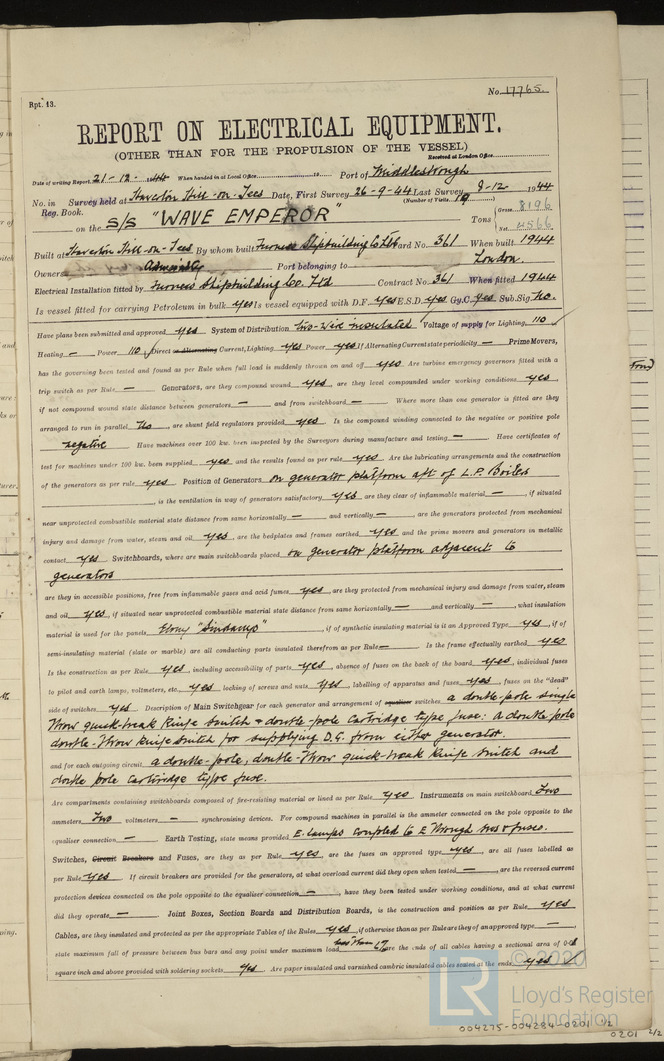 Rpt. 13.
No. 17765.
REPORT ON ELECTRICAL EQUIPMENT.
(OTHER THAN FOR THE PROPULSION OF THE VESSEL)
Received at London Office
Date of writing Report 21-12-1944 When handed in at Local Office 19 Port of Middlesbrough
No. in Survey held at Haverton Hill-on-Tees Date, First Survey 26-9-44 Last Survey 8-12 1944
Reg. Book. (Number of Visits 19)
on the S/S "WAVE EMPEROR" Tons { Gross 8196
Net 4566
Built at Haverton Hill-on-Tees By whom built Furness Shipbuilding Co Ltd Yard No. 361 When built 1944
Owners Admiralty Port belonging to London
Electrical Installation fitted by Furness Shipbuilding Co. Ltd Contract No. 361 When fitted 1944
Is vessel fitted for carrying Petroleum in bulk yes Is vessel equipped with D.F. yes E.S.D. yes Gy.C. yes Sub.Sig. No.
Have plans been submitted and approved yes System of Distribution two-wire insulated Voltage of supply for Lighting 110
Heating — Power 110 Direct or Alternating Current, Lighting yes Power yes If Alternating Current state periodicity — Prime Movers,
has the governing been tested and found as per Rule when full load is suddenly thrown on and off yes Are turbine emergency governors fitted with a
trip switch as per Rule — Generators, are they compound wound yes, are they level compounded under working conditions yes,
if not compound wound state distance between generators — and from switchboard — Where more than one generator is fitted are they
arranged to run in parallel No, are shunt field regulators provided yes Is the compound winding connected to the negative or positive pole
negative Have machines over 100 kw. been inspected by the Surveyors during manufacture and testing — Have certificates of
test for machines under 100 kw. been supplied yes and the results found as per rule yes Are the lubricating arrangements and the construction
of the generators as per rule yes Position of Generators on generator platform aft of L.P. Boiler
, is the ventilation in way of generators satisfactory yes are they clear of inflammable material —, if situated
near unprotected combustible material state distance from same horizontally — and vertically —, are the generators protected from mechanical
injury and damage from water, steam and oil yes, are the bedplates and frames earthed yes and the prime movers and generators in metallic
contact yes Switchboards, where are main switchboards placed on generator platform adjacent to
generators
are they in accessible positions, free from inflammable gases and acid fumes yes, are they protected from mechanical injury and damage from water, steam
and oil yes, if situated near unprotected combustible material state distance from same horizontally — and vertically —, what insulation
material is used for the panels Ebony "Sindanyo", if of synthetic insulating material is it an Approved Type yes, if of
semi-insulating material (slate or marble) are all conducting parts insulated therefrom as per Rule — Is the frame effectually earthed yes
Is the construction as per Rule yes, including accessibility of parts yes, absence of fuses on the back of the board yes, individual fuses
to pilot and earth lamps, voltmeters, etc. yes locking of screws and nuts yes, labelling of apparatus and fuses yes, fuses on the "dead"
side of switches yes Description of Main Switchgear for each generator and arrangement of equaliser switches a double-pole single
throw quick-break knife switch & double-pole cartridge type fuse: a double pole
double-throw knife switch for supplying D.G. from either generator.
and for each outgoing circuit a double-pole, double-throw quick-break knife switch and
double pole cartridge type fuse.
Are compartments containing switchboards composed of fire-resisting material or lined as per Rule yes Instruments on main switchboard Two
ammeters Two voltmeters — synchronising devices. For compound machines in parallel is the ammeter connected on the pole opposite to the
equaliser connection — Earth Testing, state means provided E. lamps coupled to E through sws & fuses.
Switches, Circuit Breakers and Fuses, are they as per Rule yes are the fuses an approved type yes, are all fuses labelled as
per Rule yes If circuit breakers are provided for the generators, at what overload current did they open when tested —, are the reversed current
protection devices connected on the pole opposite to the equaliser connection —, have they been tested under working conditions, and at what current
did they operate — Joint Boxes, Section Boards and Distribution Boards, is the construction and position as per Rule yes
Cables, are they insulated and protected as per the appropriate Tables of the Rules yes, if otherwise than as per Rule are they of an approved type —,
state maximum fall of pressure between bus bars and any point under maximum load less than 6% are the ends of all cables having a sectional area of 0·01
square inch and above provided with soldering sockets yes Are paper insulated and varnished cambric insulated cables sealed at the ends yes
© 2020
LR
Lloyd's Register
Foundation
004275-004284-0201 1/2
0201 2/2